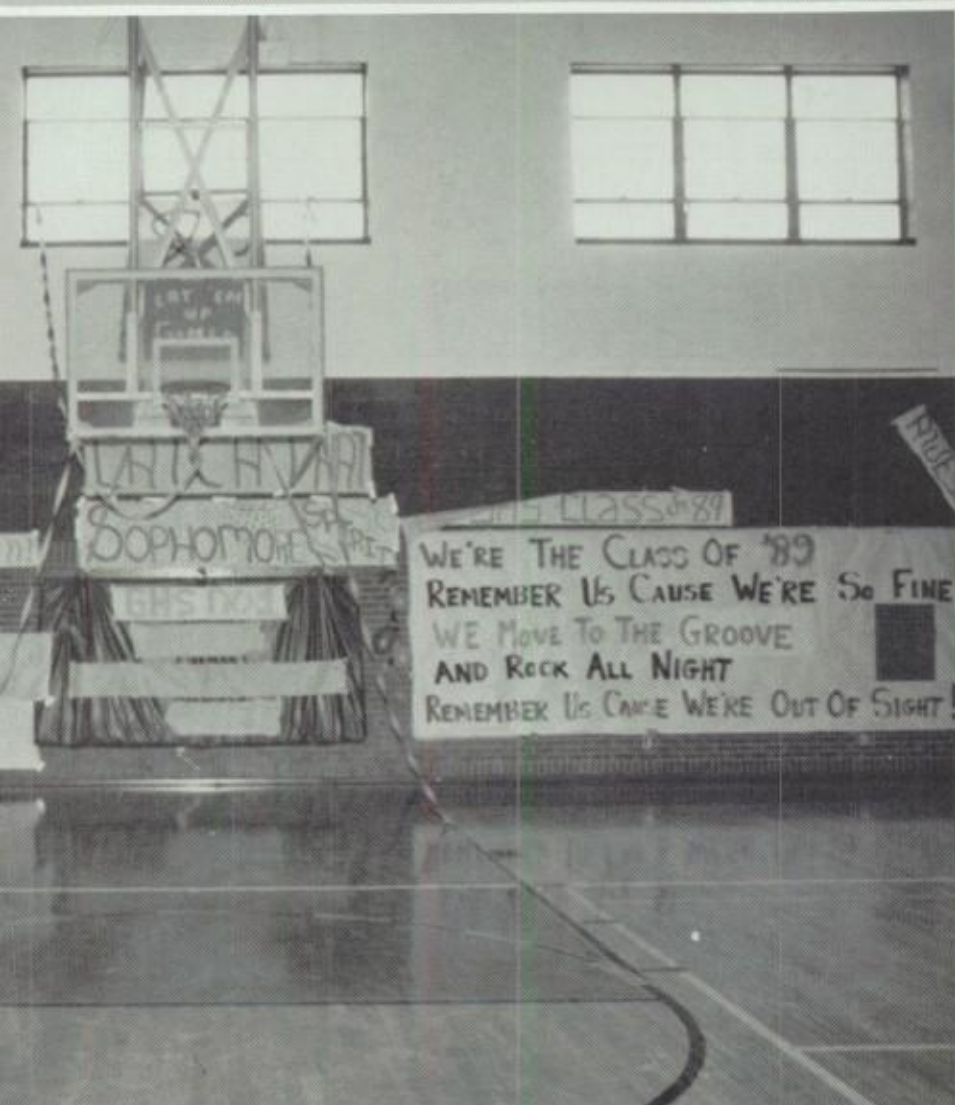 EAT 'EM
UP
SOPHOMORE
GHS
CLASS of 89
WE'RE THE CLASS OF '89
REMEMBER US CAUSE WE'RE SO FINE
WE MOVE TO THE GROOVE
AND ROCK ALL NIGHT
REMEMBER US CAUSE WE'RE OUT OF SIGHT!